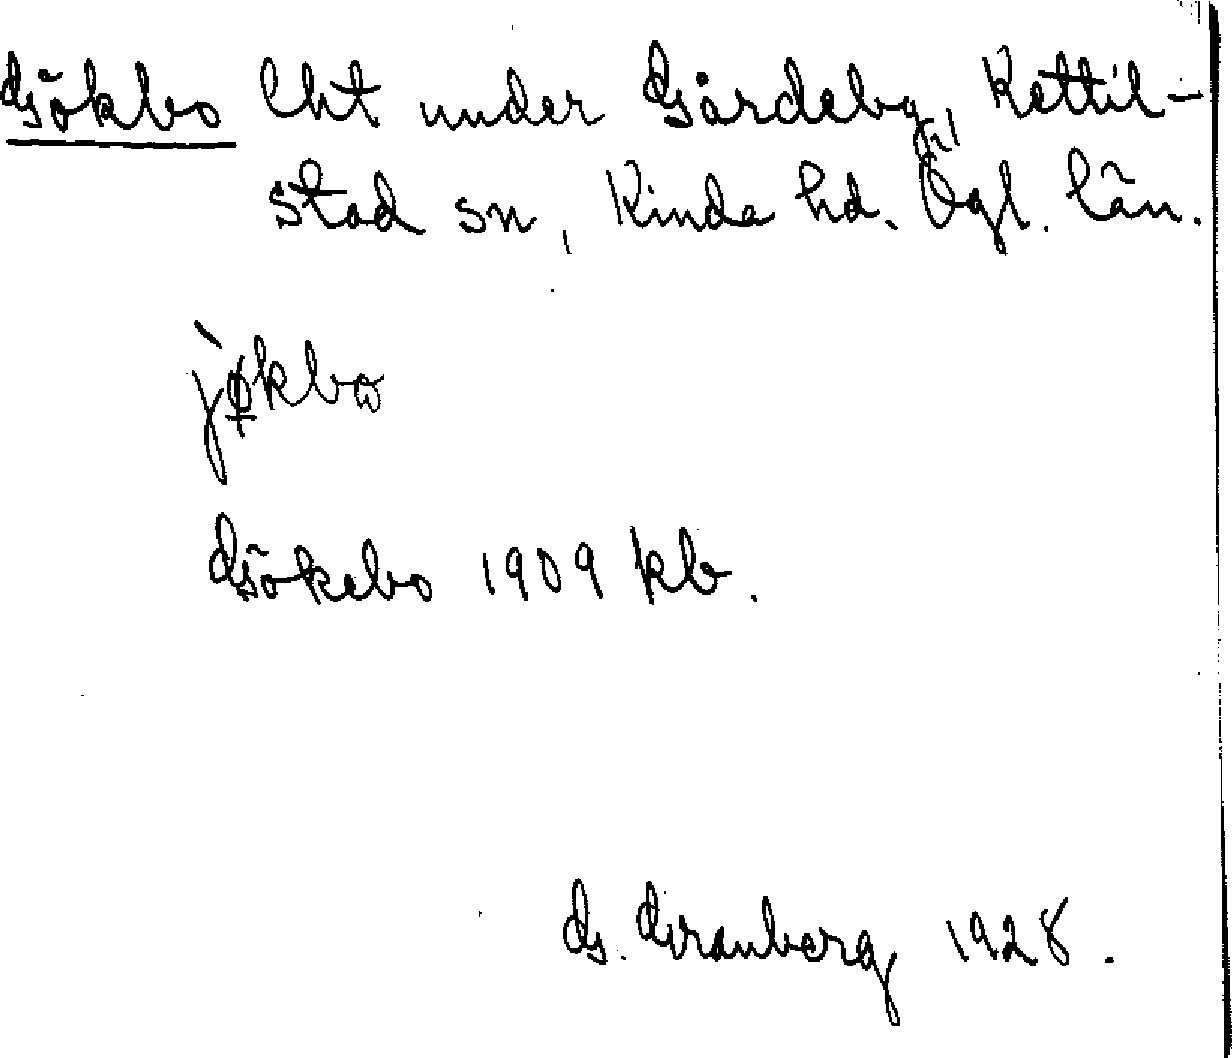 Gökbo Lht under Gårdeby, Kettil-
stad sn, Kinda hd. Ögl. län.
jøkbω
Gökebo 1909 kb.
G. Granberg 1928.